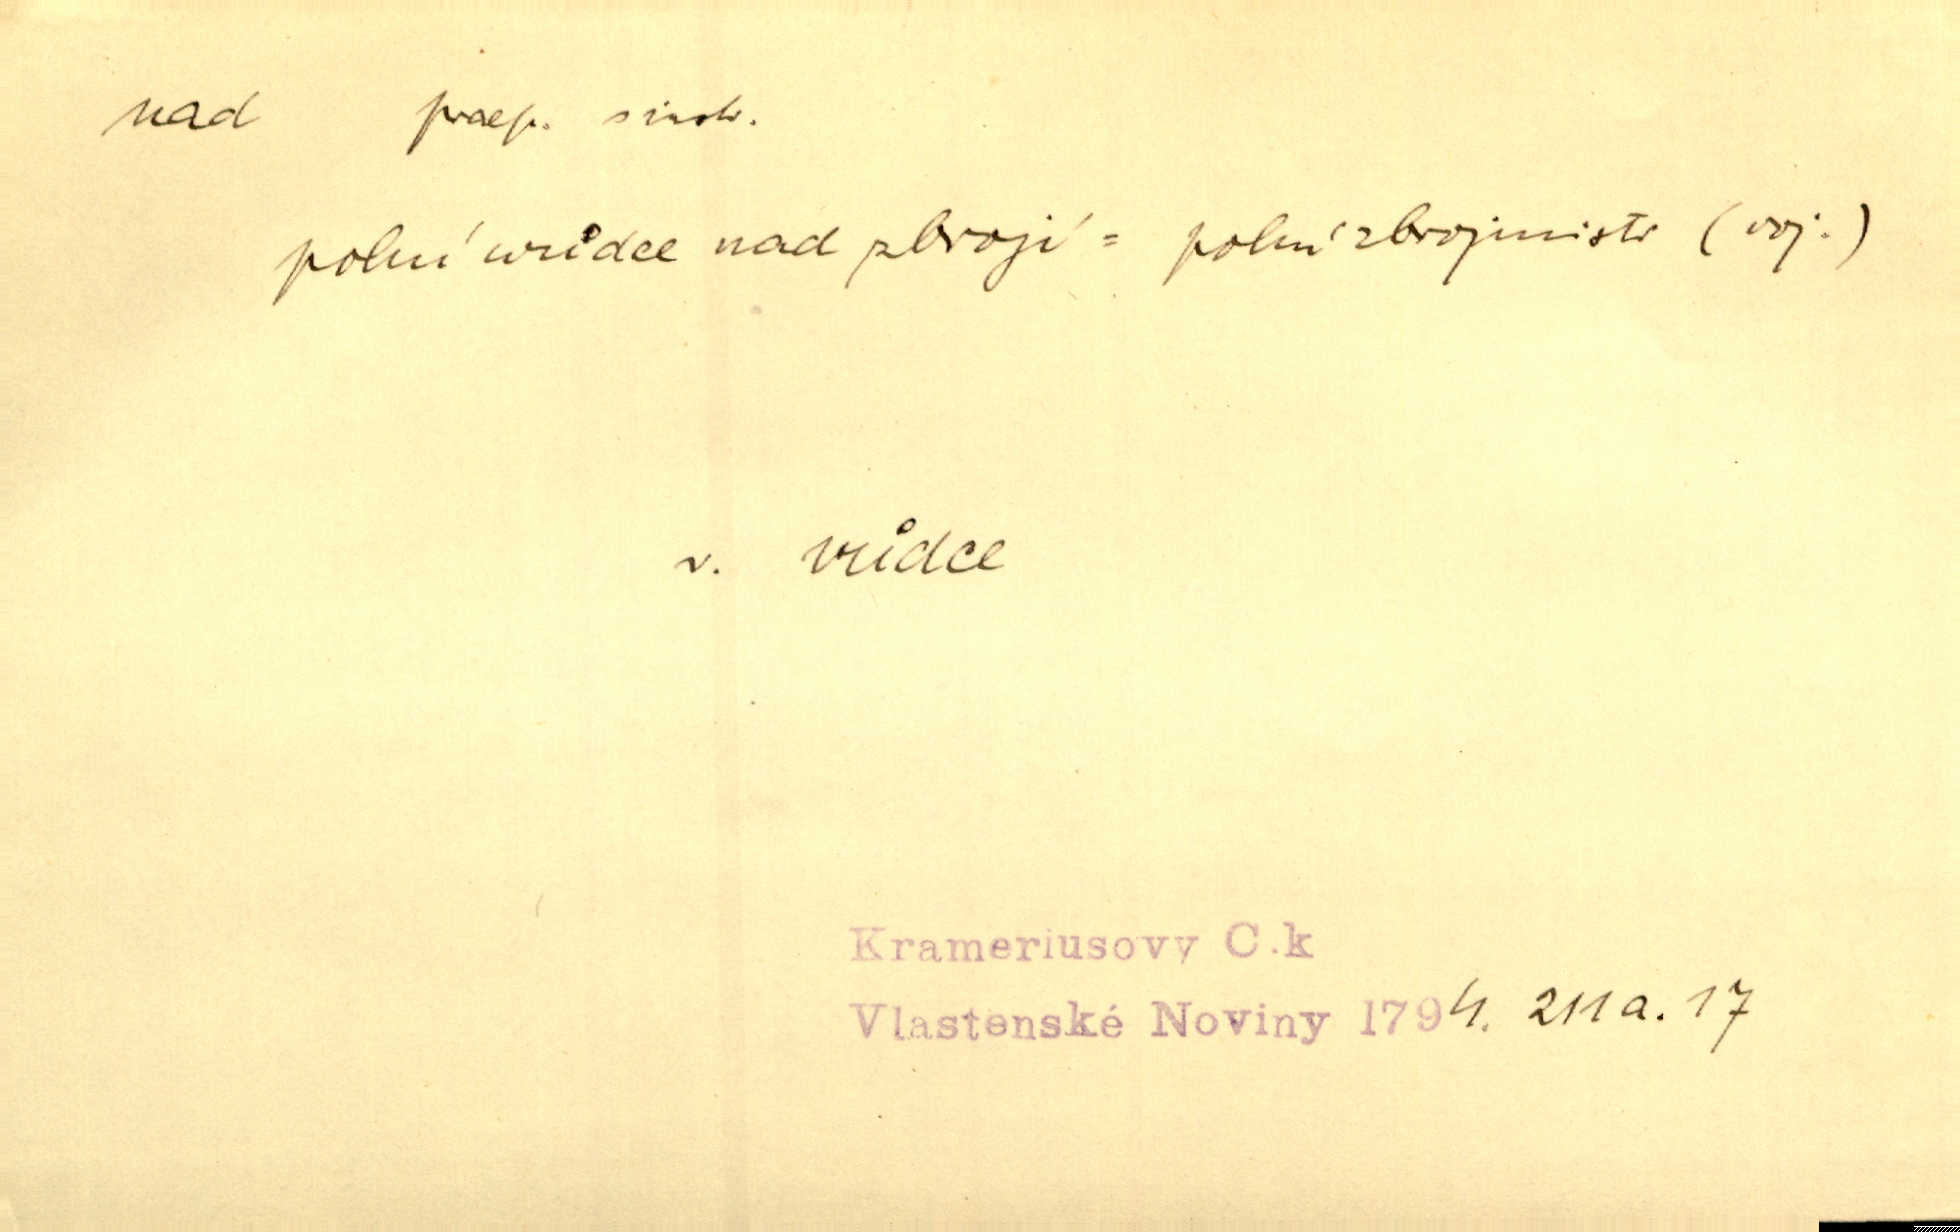 nad praep. s instr.
polní wůdce nad zbrojí = polní zbrojmistr (voj.)
v. vůdce
Krameriusovy C.k
Vlastenské Noviny 1794. 211a. 17